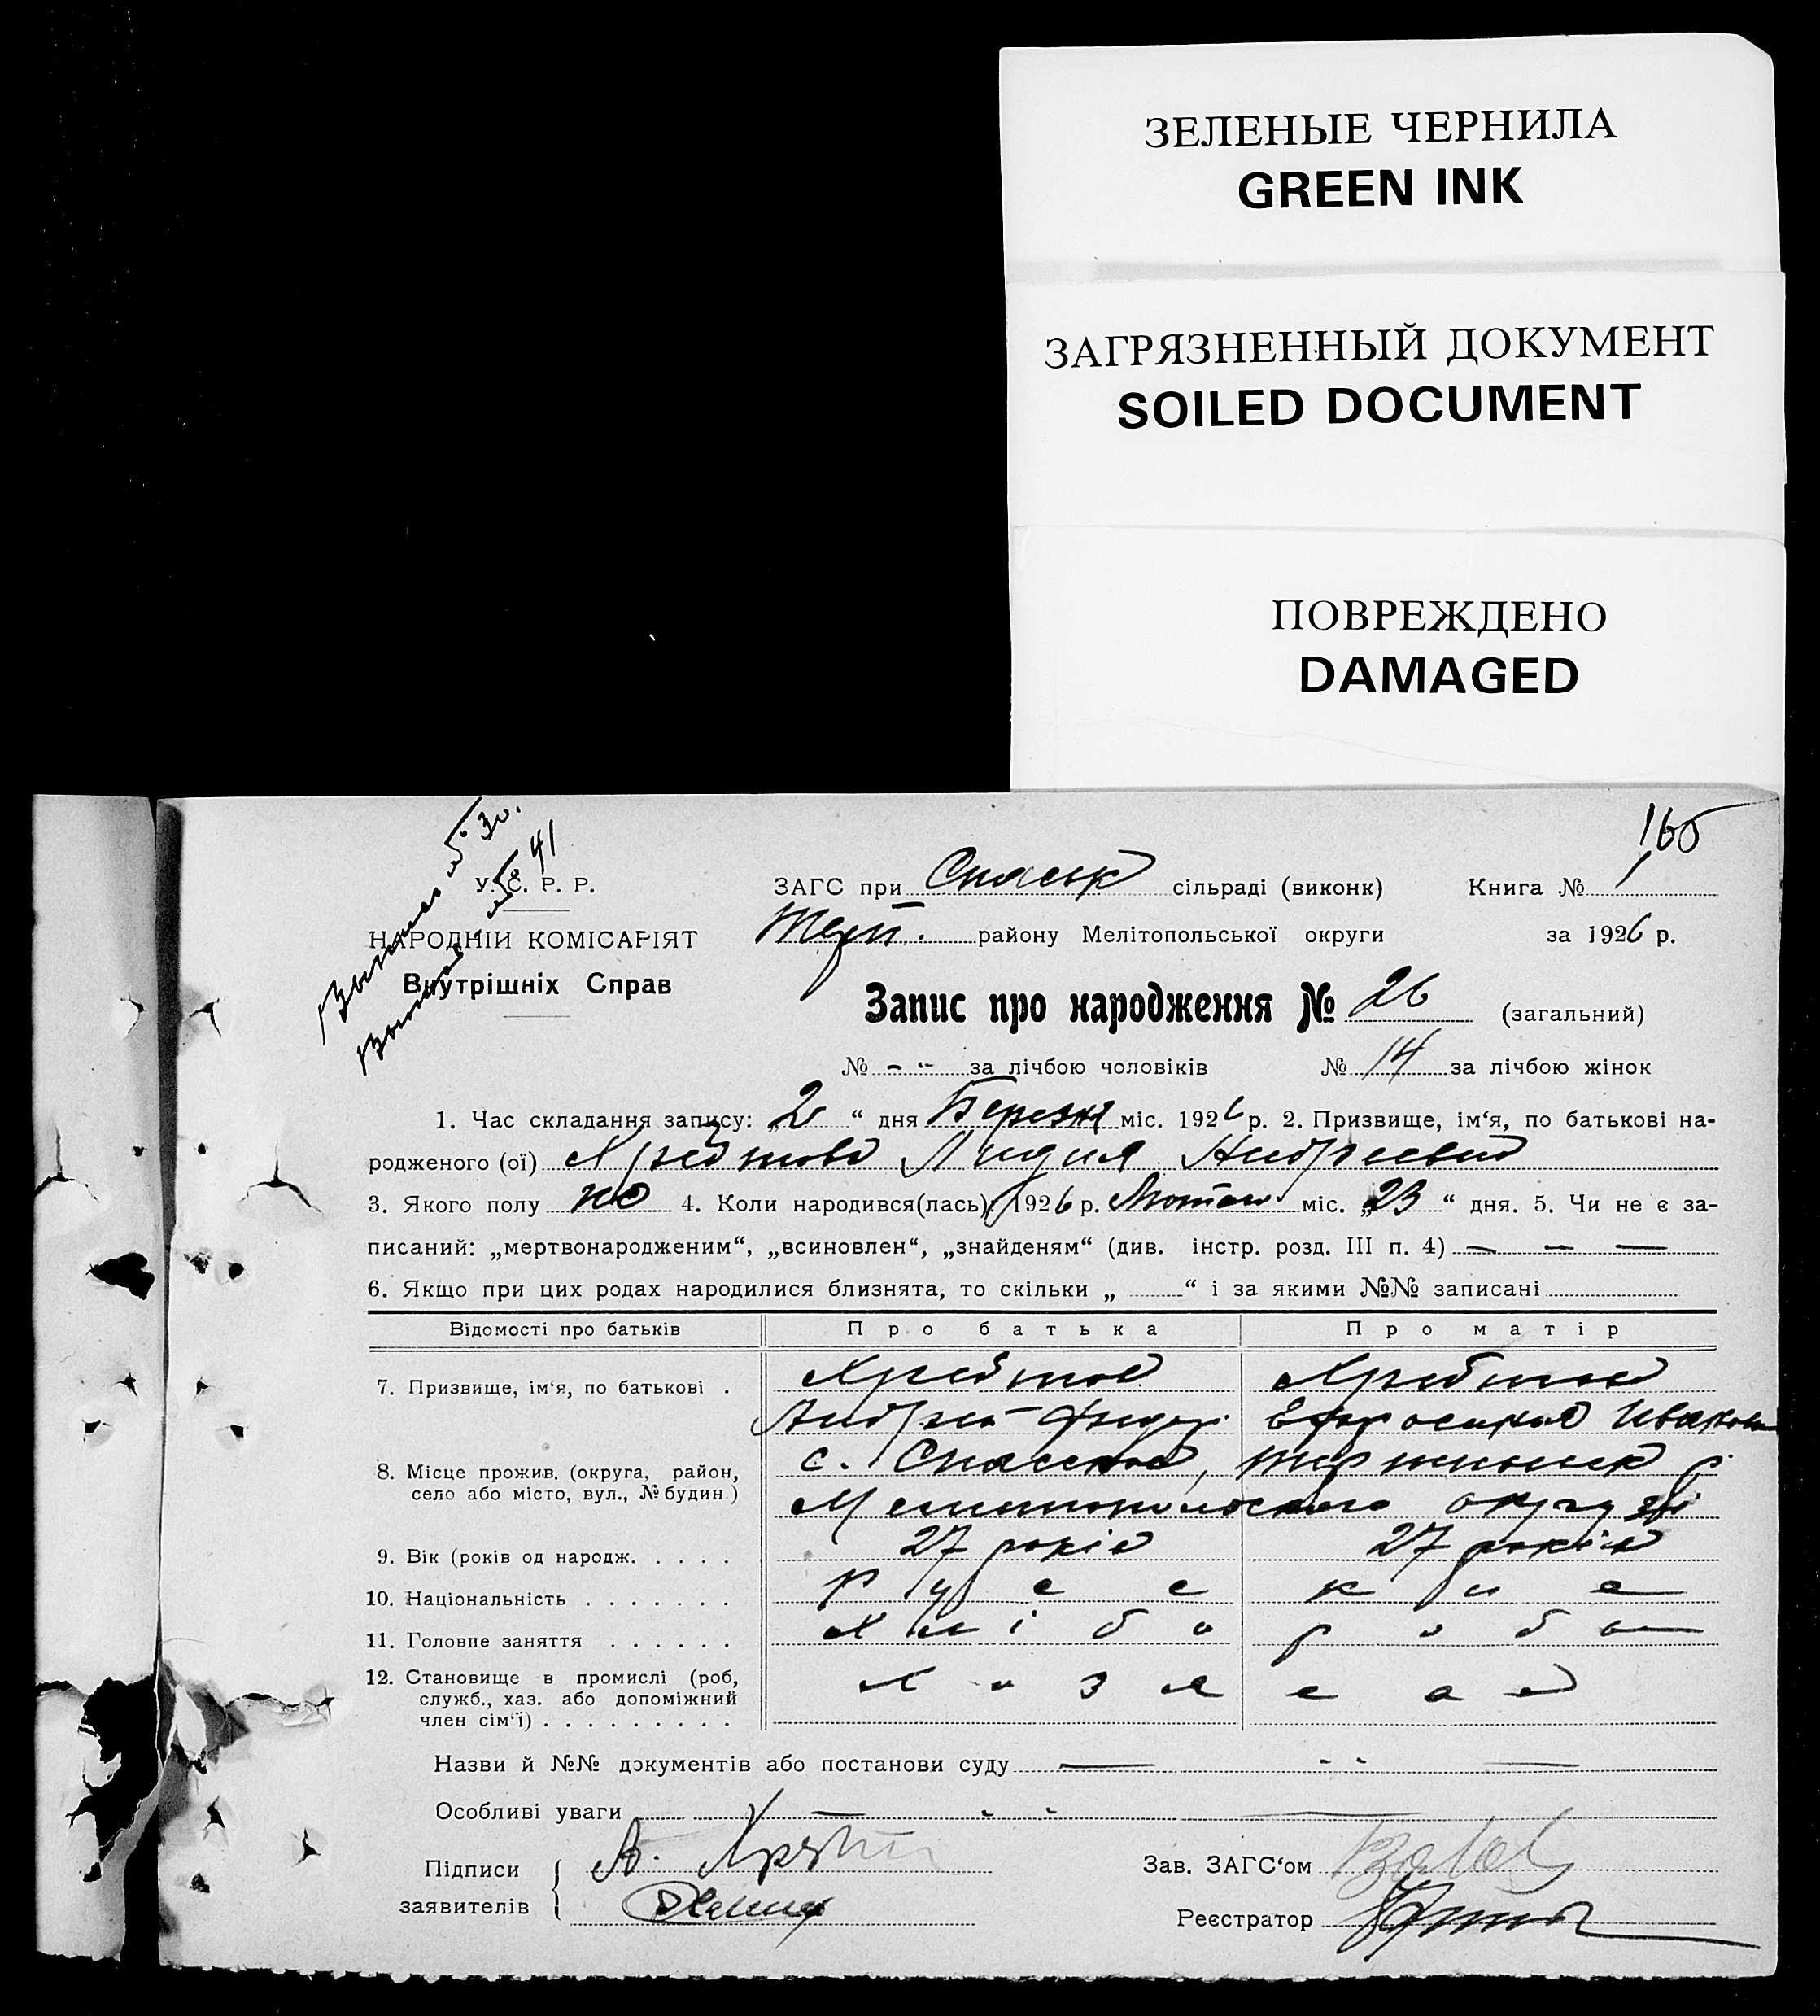 ЗЕЛЕНЫЕ ЧЕРНИЛА
GREEN INK
ЗАГРЯЗНЕННЫЙ ДОКУМЕНТ
SOILED DOCUMENT
ПОВРЕЖДЕНО
DAMAGED
У. С. Р. Р.
НАРОДНІЙ КОМІСАРІЯТ
Внутрішніх Справ
ЗАГС при Спаськ сільраді (виконк) Книга № 1
Терп. району Мелітопольської округи за 1926 р.
Запис про народження № 26 (загальний)
№ - „- за лічбою чоловіків № 14 за лічбою жінок
1. Час складання запису: „2“ дня Березня міс. 1926 р. 2. Призвище, ім‘я, по батькові на-
родженого (ої) Лидия Андреевна
3. Якого полу жо 4. Коли народився(лась) 1926 р. Лютого міс. „23“ дня. 5. Чи не є за-
писаний: „мертвонародженим“, „всиновлен“, „знайденям“ (див. інстр. розд. III п. 4) — - —
6. Якщо при цих родах народилися близнята, то скільки „ “ і за якими №№ записані
Відомості про батьків Про батька Про матір
7. Призвище, ім‘я, по батькові .
Андрей Федор. Ефросиния Иванов
8. Місце прожив. (округа, район, с. Спасское,
село або місто, вул., № будин.) Мелитопольского округи
9. Вік (років од народж. . . . . 27 років 27 років
10. Національність . . . . . . . русские
11. Головне заняття . . . . . . хлібороб
12. Становище в промислі (роб, хазяеа
служб., хаз. або допоміжний
член сім‘ї) . . . . . . . . .
Назви й №№ документів або постанови суду — - - —
Особливі уваги — - - —
Підписи А.
заявителів
Зав. ЗАГС‘ом
Реєстратор